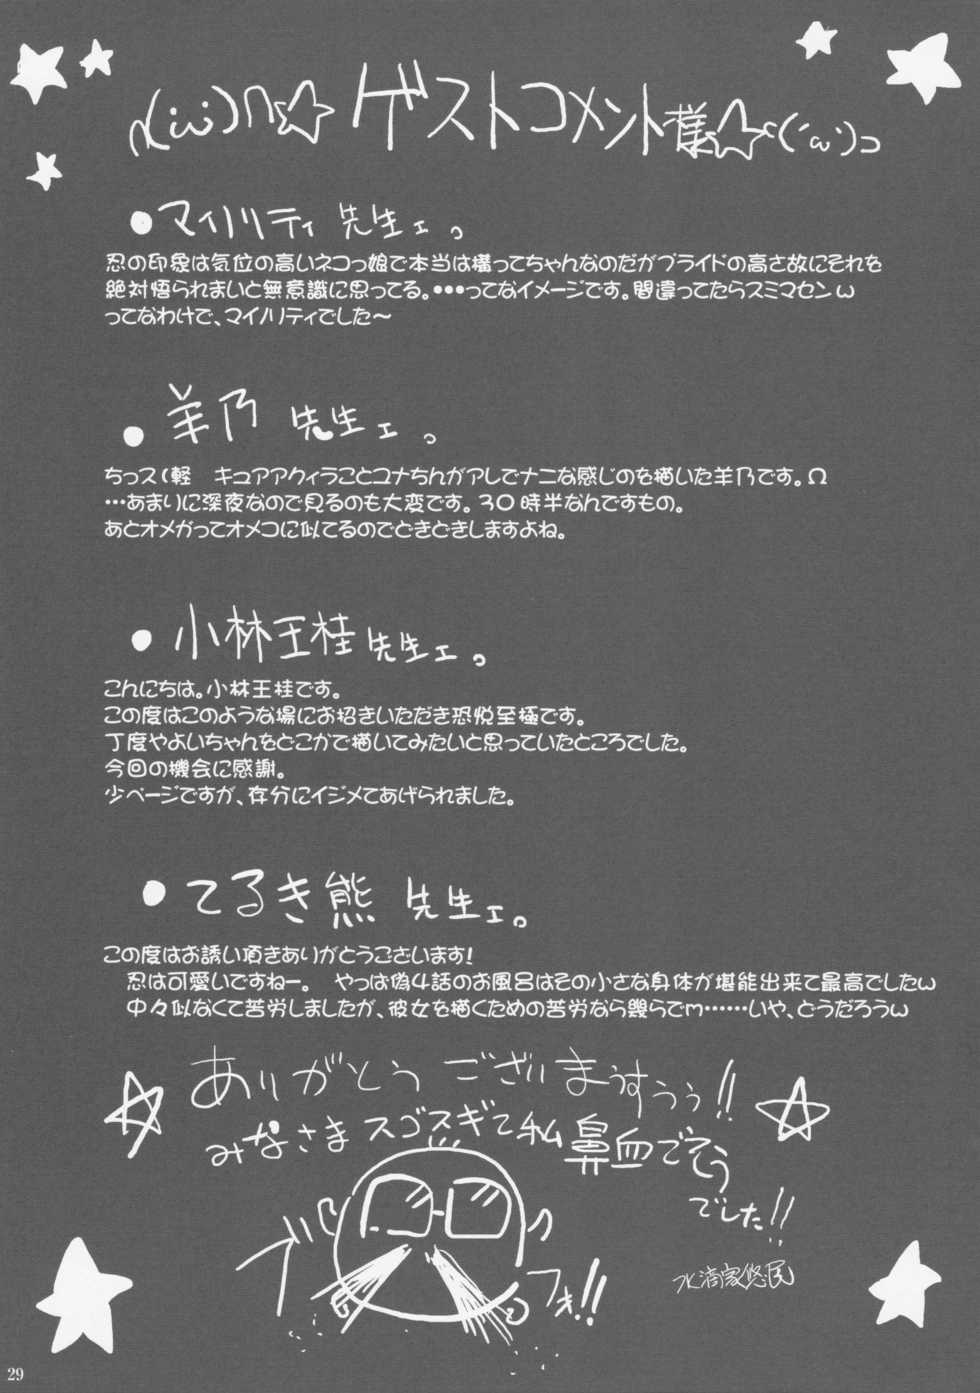 ∩(;ω)∩☆ ゲストコメント様☆⊂(´ω`)⊃
●マイノリティ 先生ェ。
忍の印象は気位の高いネコっ娘で本当は構ってちゃんなのだがプライドの高さ故にそれを
絶対悟られまいと無意識に思ってる。•••ってなイメージです。間違ってたらスミマセンω
ってなわけで、マイノリティでした～
●羊乃 先生ェ。
ちっス(軽　キュアアクィラことユナちんがアレでナニな感じのを描いた羊乃です。Ω
•••あまりに深夜なので見るのも大変です。30時半なんですもの。
あとオメガってオメコに似てるのでどきどきしますよね。
●小林王桂先生ェ。
こんにちは。小林王桂です。
この度はこのような場にお招きいただき恐悦至極です。
丁度やよいちゃんをどこかで描いてみたいと思っていたところでした。
今回の機会に感謝。
少ページですが、存分にイジメてあげられました。
●てるき熊 先生ェ。
この度はお誘い頂きありがとうございます!
忍は可愛いですねー。　やっぱ偽4話のお風呂はその小さな身体が堪能出来て最高でしたω
中々似なくて苦労しましたが、彼女を描くための苦労なら幾らでm……いや、どうだろうω
ありがとう ございまうすぅぅ!!
みなさま スゴスギて私 鼻血でそう
でした!!
ブバ
フォ!!
水滴家悠民
29